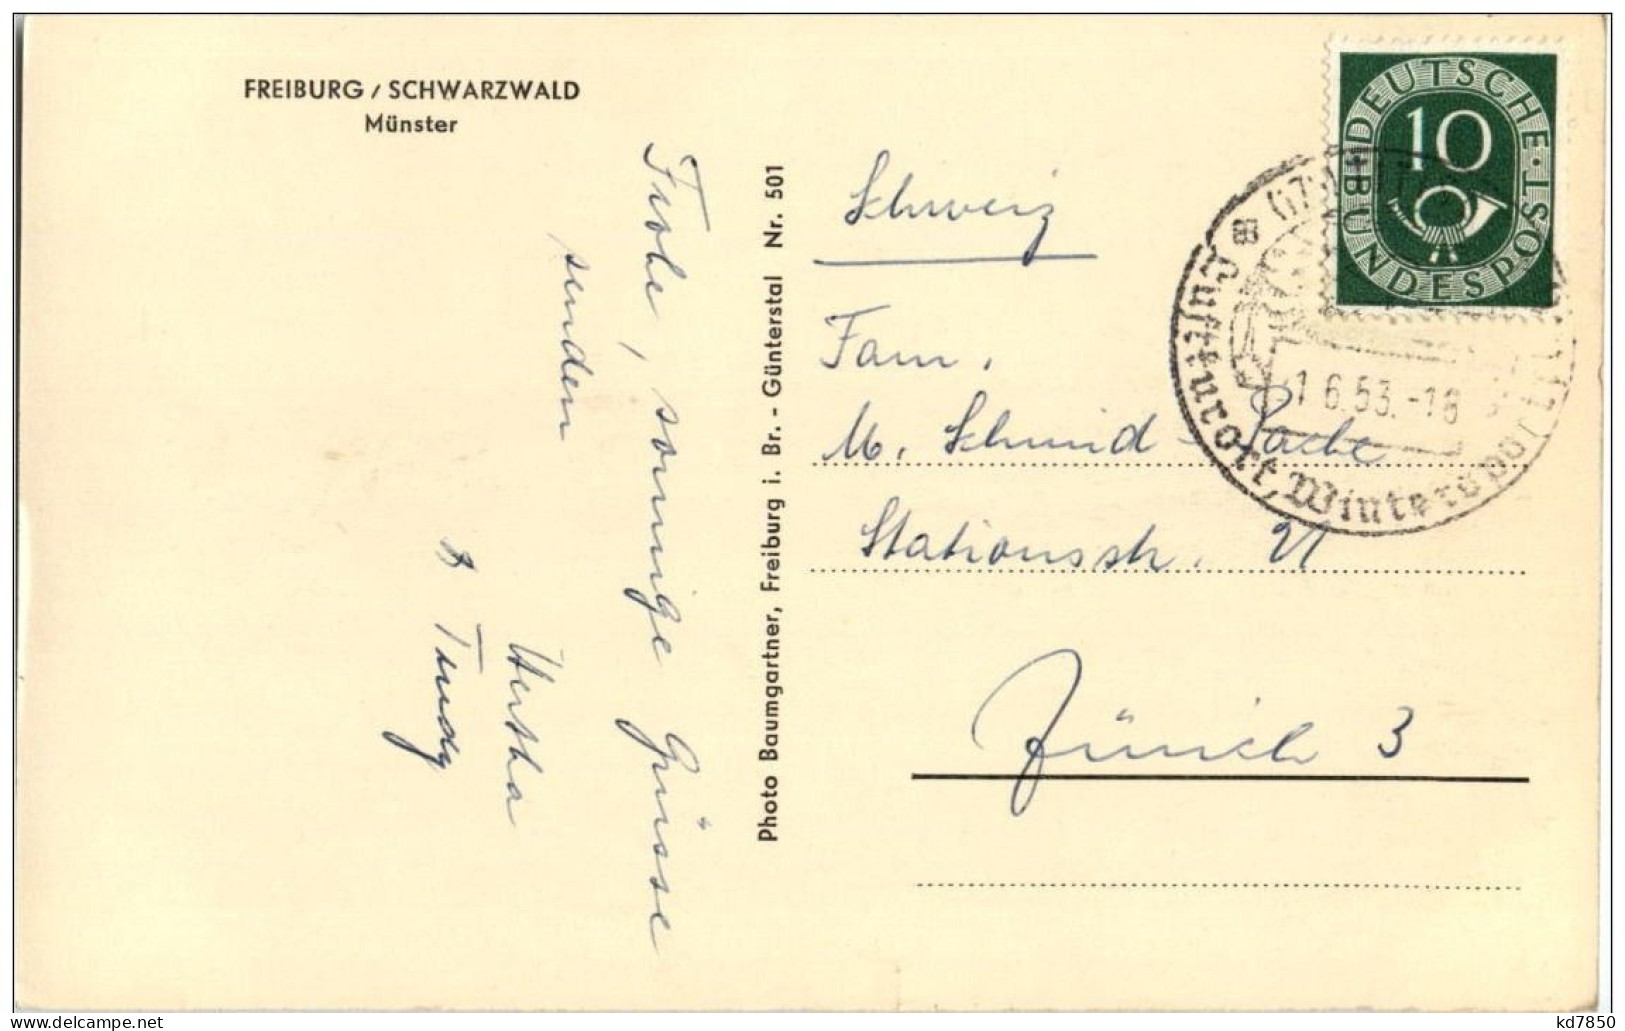 FREIBURG / SCHWARZWALD
Münster
Frohe, sonnige Grüsse
senden
Hertha
& Trudy
Photo Baumgartner, Freiburg i. Br. - Günterstal Nr. 501
DEUTSCHE · BUNDESPOST
10
(17
Luftkurort, Winterspo
1 6.53.-18
Schweiz
Fam.
M. Schmid - Pache
Stationsstr. 21
Zürich 3
kd7850